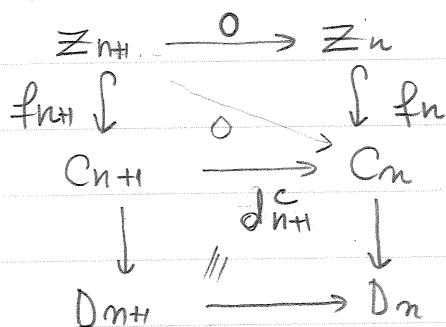 Zn+1 0 Zn
fn+1 fn
0
Cn+1 Cn
d^c_n+1
///
Dn+1 Dn